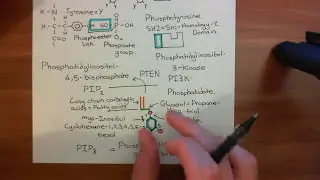 Tyrosine=Y
HO
OH
Phosphoester
link
Phosphate
group.
Phosphotyrosine
SH2=Src-Homology-2
Domain.
Phosphatidylinositol-
4,5-bisphosphate
3-kinase
PTEN
PI3K
PIP2
Phosphatidate.
Long chain carboxylic
acids = Fatty acids
Glycerol = Propane-
triol
myo-Inositol
Cyclohexane-1,2,3,4,5,6-
hexol
PIP3 =